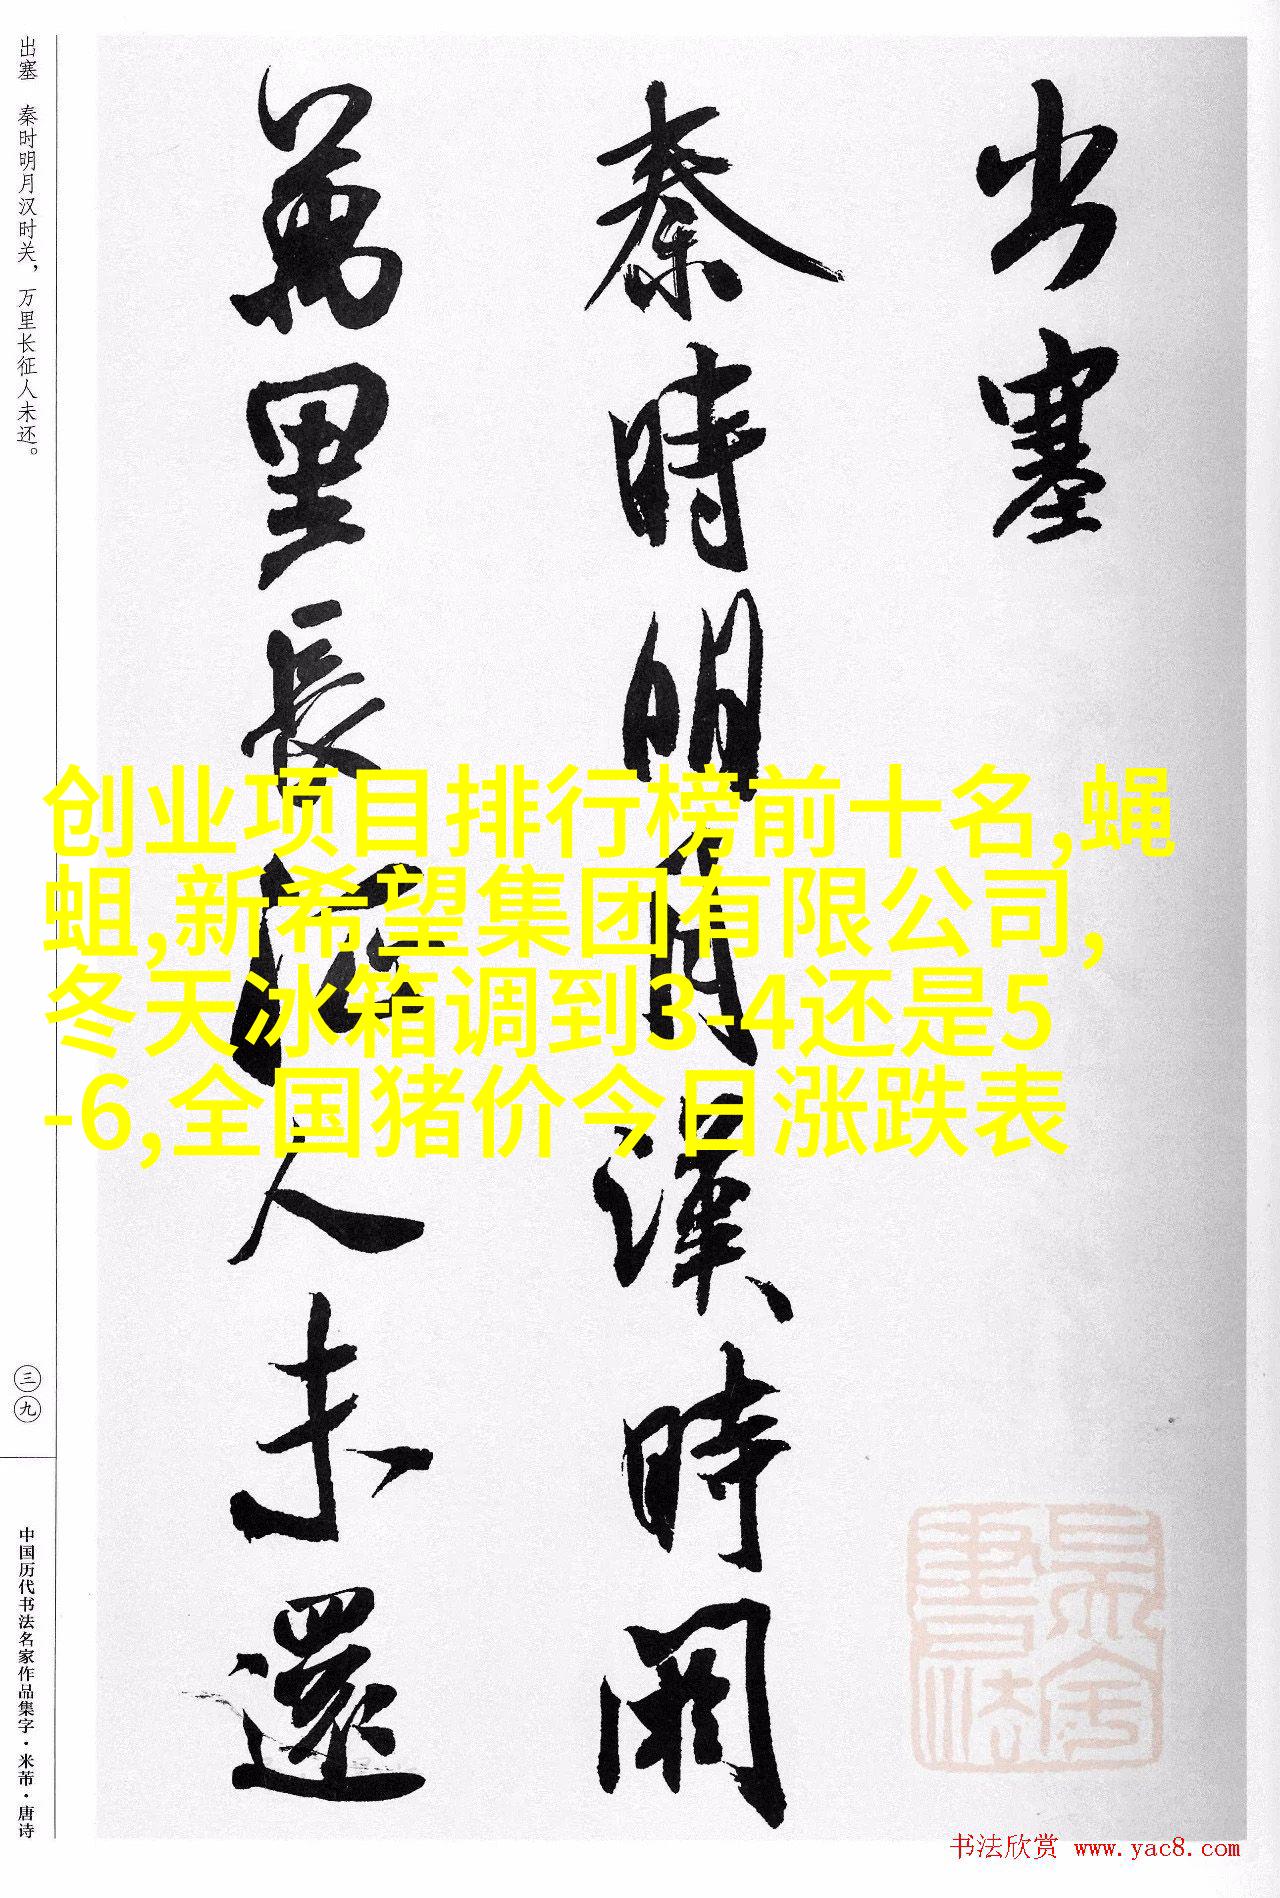 出塞
秦時明月漢時關
萬里長征人未還
出塞 秦时明月汉时关，万里长征人未还。
三九
中国历代书法名家作品集字·米芾·唐诗
创业项目排行榜前十名,蝇
蛆,新希望集团有限公司,
冬天冰箱调到3-4还是5
-6,全国猪价今日涨跌表
书法欣赏 www.yac8.com